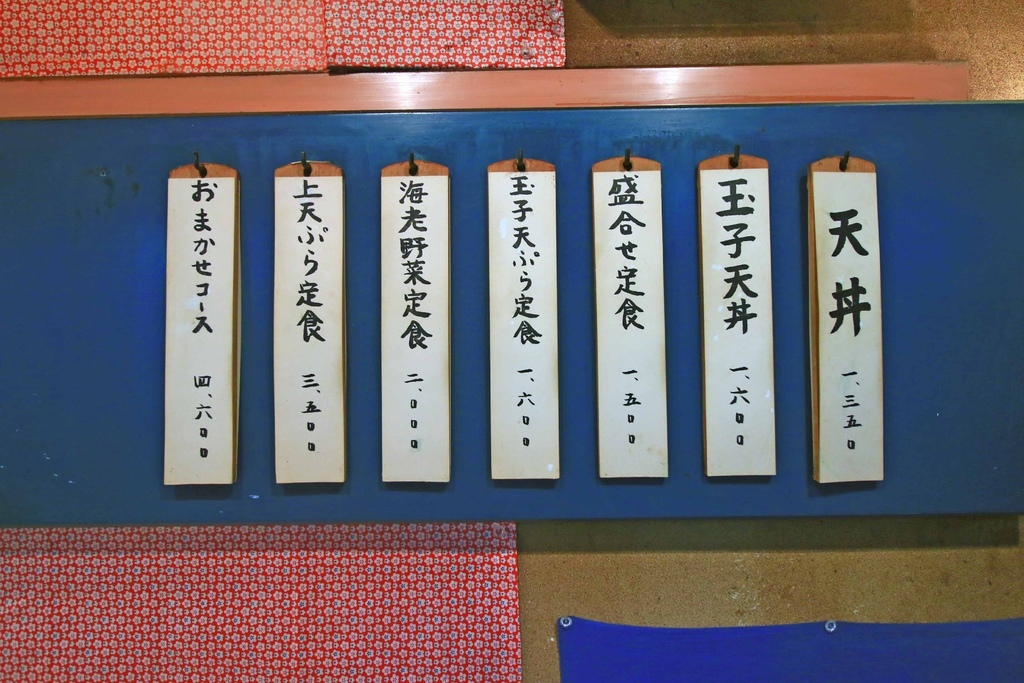 天丼 一、三五〇
玉子天丼 一、六〇〇
盛合せ定食 一、五〇〇
玉子天ぷら定食 一、六〇〇
海老野菜定食 二、〇〇〇
上天ぷら定食 三、五〇〇
おまかせコース 四、六〇〇